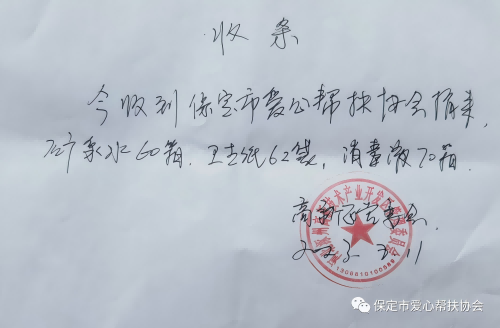 收条
今收到保定市爱心帮扶协会捐来
矿泉水60箱.卫生纸62袋,消毒液70箱.
高新区管委会.
保定市爱心帮扶协会